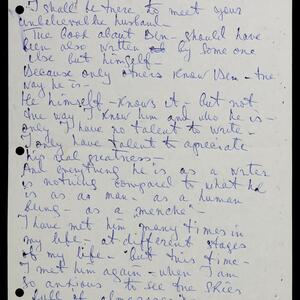 I shall be there to meet your
unbelievable husband -
The book about Ben - should have
been also written by some one
else but himself -
Because only others know Ben - the
way he is -
He himself - knows it - but not
the way I know him and who he is -
only I have no talent to write -
I only have talent to apreciate
his real greatness -
And everything he is as a writer
is nothing compared to what he
is as a man - as a human
being - as a "menche" -
I have met him many times in
my life - at different stages
of my life - but this time -
I met him again - when I am
so anxious to see the skies
full of